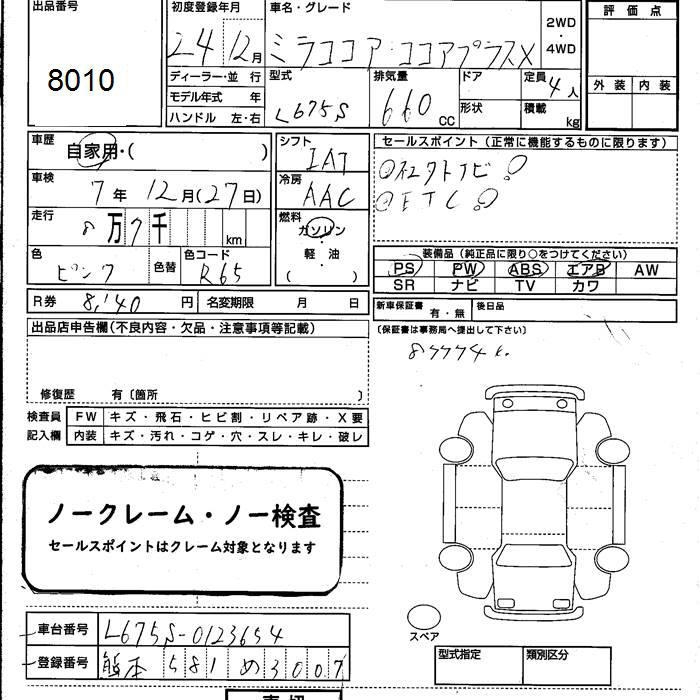 出品番号
8010
初度登録年月
24 12月
車名・グレード
ミラココア・ココアプラスX
2WD
・
4WD
評 価 点
外 装 内 装
ディーラー・並 行
モデル年式 年
ハンドル 左・右
型式
L675S
排気量
660 CC
ドア
形状
定員
4人
積載
kg
車歴
自家用・( )
車検
7年 12月(27日)
走行
8万7千
km
色
ピンク
色替
色コード
R65
シフト
IAT
冷房
AAC
燃料
ガソリン
・
軽 油
( )
セールスポイント(正常に機能するものに限ります)
ETC
装備品(純正品に限り○をつけてください)
PS PW ABS エアB AW
SR ナビ TV カワ
R券 8,140 円 名変期限 月 日
新車保証書 有・無 後日品
(保証書は事務局へ提出して下さい)
出品店申告欄(不良内容・欠品・注意事項等記載)
修復歴 有〔箇所 〕
検査員
記入欄
FW キズ・飛石・ヒビ割・リペア跡・X要
内装 キズ・汚れ・コゲ・穴・スレ・キレ・破レ
ノークレーム・ノー検査
セールスポイントはクレーム対象となります
車台番号 L675S-0123654
登録番号 熊本 581 め 3007
スペア
型式指定 類別区分